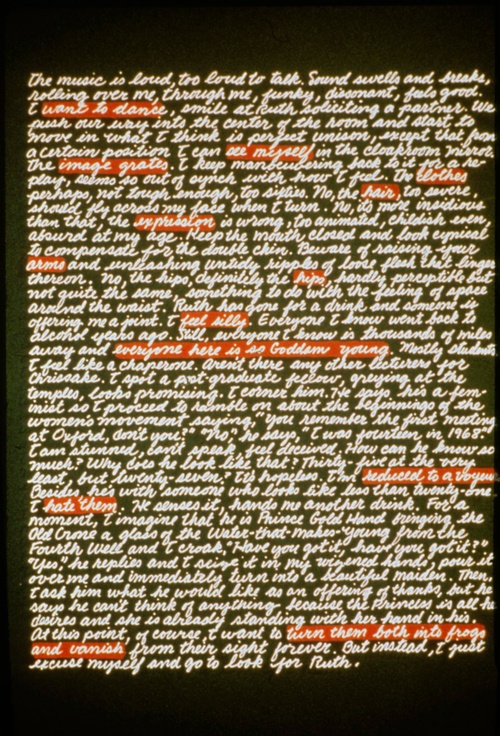 the music is loud, too loud to talk. Sound swells and breaks,
rolling over me, through me, funky, dissonant, feels good.
I want to dance, smile at Ruth soliciting a partner. We
push our way into the center of the room and start to
move in what I think is perfect unison, except that from
a certain position I can see myself in the cloakroom mirror.
The image grates. I keep manoeuvering back to it for a re-
play, seems so out of synch with how I feel. The clothes
perhaps, not tough enough, too sixties. No, the hair, to severe,
should fly across my face when I turn. No, it's more insidious
than that, the expression is wrong, too animated, childish even,
absurd at my age. Keep the mouth closed and look cynical
to compensate for the double chin. Beware of raising your
arms and unleashing unsightly ripples of loose flesh that linger
thereon. No, the hips, definitely the hips, hardly perceptible but
not quite the same, something to do with the feeling of space
around the waist. Ruth has gone for a drink and someone is
offering me a joint. I feel silly. Everyone I know went back to
alcohol years ago. Still, everyone I know is thousands of miles
away and everyone here is so Goddam young. Mostly students.
I feel like a chaperone. Aren't there any other lecturers for
Chrissake. I spot a post-graduate fellow, greying at the
temples, looks promising. I corner him. He says, he's a fem-
inist so I proceed to ramble on about the beginnings of the
women's movement saying, "you remember the first meeting
at Oxford, don't you?" "No," he says, "I was fourteen in 1968."
I am stunned, can't speak, feel deceived. How can he know so
much? Why does he look like that? Thirty-five at the very
least, but twenty-seven? It's hopeless. I'm reduced to a voyeur.
Besides, he's with someone who looks like less than twenty-one.
I hate them. He senses it, hands me another drink. For a
moment, I imagine that he is Prince Gold Hand bringing the
Old Crone a glass of the Water-that-makes-Young from the
Fourth Well and I croak, "Have you got it, have you got it?"
"Yes," he replies and I seize it in my wizened hands, pour it
over me and immediately turn into a beautiful maiden. Then,
I ask him what he would like as an offering of thanks, but he
says he can't think of anything because the Princess is all he
desires and she is already standing with her hand in his.
At this point, of course, I want to turn them both into frogs
and vanish from their sight forever. But instead, I just
excuse myself and go to look for Ruth.